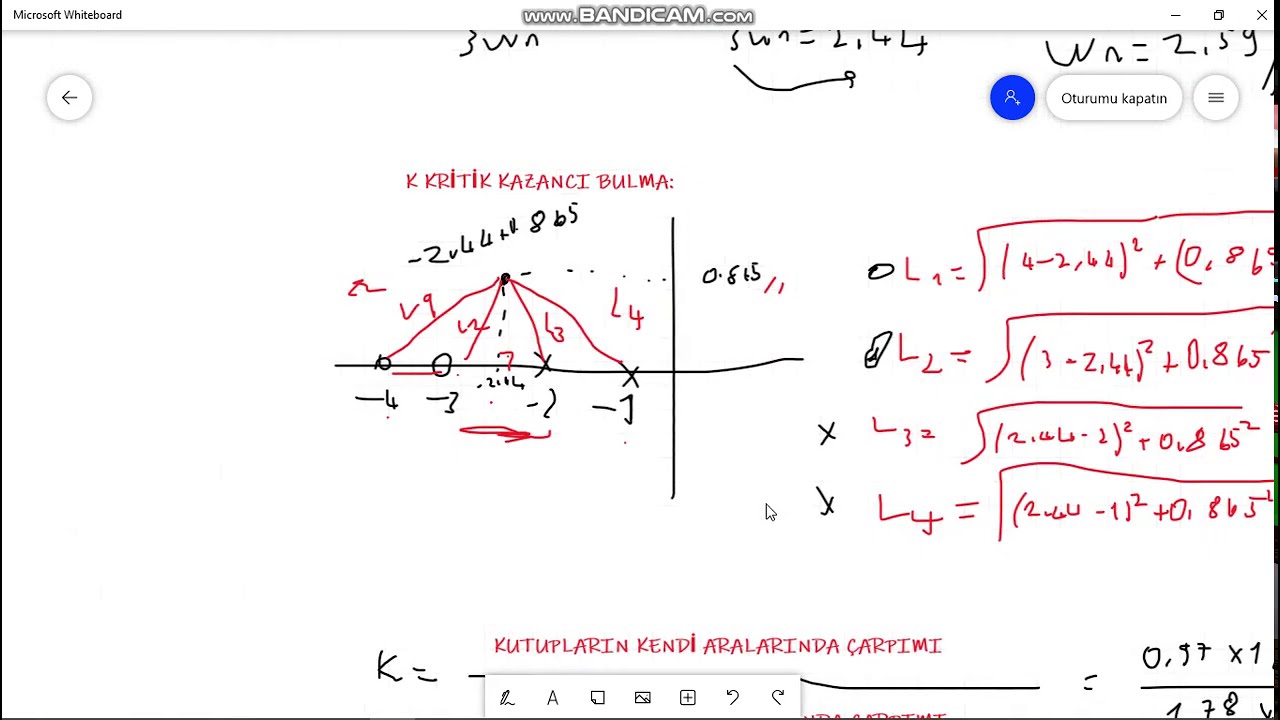 Microsoft Whiteboard
www.BANDICAM.com
3Wn
3Wn = 2,44
Wn = 2,59
Oturumu kapatın
K KRİTİK KAZANCI BULMA:
0.865
L1 = √(4-2,44)² + (0,865
L2 = √(3-2,44)² + 0,865
L3 = √(2.44-2)² + 0,865²
L4 = √(2.44-1)² + 0,865²
L2
L3
L4
-4
-3
-2
-1
KUTUPLARIN KENDİ ARALARINDA ÇARPIMI
K =
=
0,97 x 1
1,78